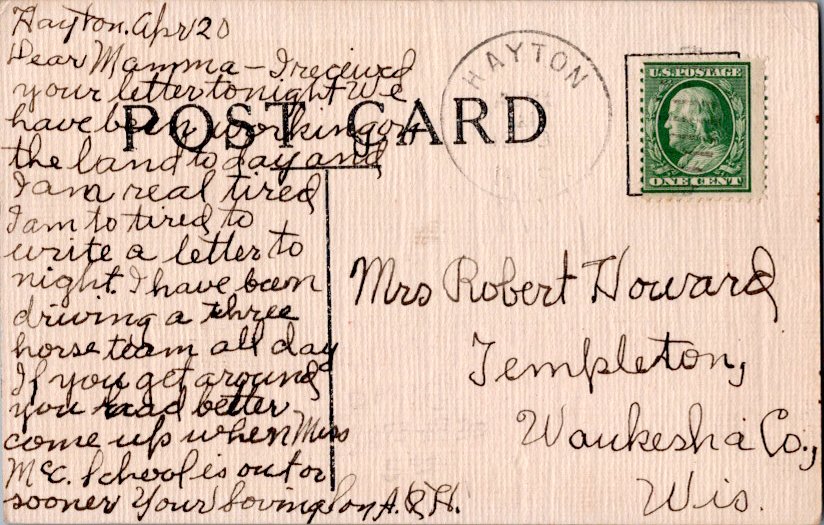 Hayton. Apr 20
Dear Mamma – I received
your letter tonight We
have been working on
the land to day and
I am real tired
I am to tired to
write a letter to
night. I have been
driving a three
horse team all day
If you get around
you had better
come up when Miss
McC. school is out or
sooner Your Loving Son A.R.H.
POST CARD
HAYTON
U.S. POSTAGE
ONE CENT
Mrs Robert Howard
Templeton,
Waukesha Co.,
Wis.